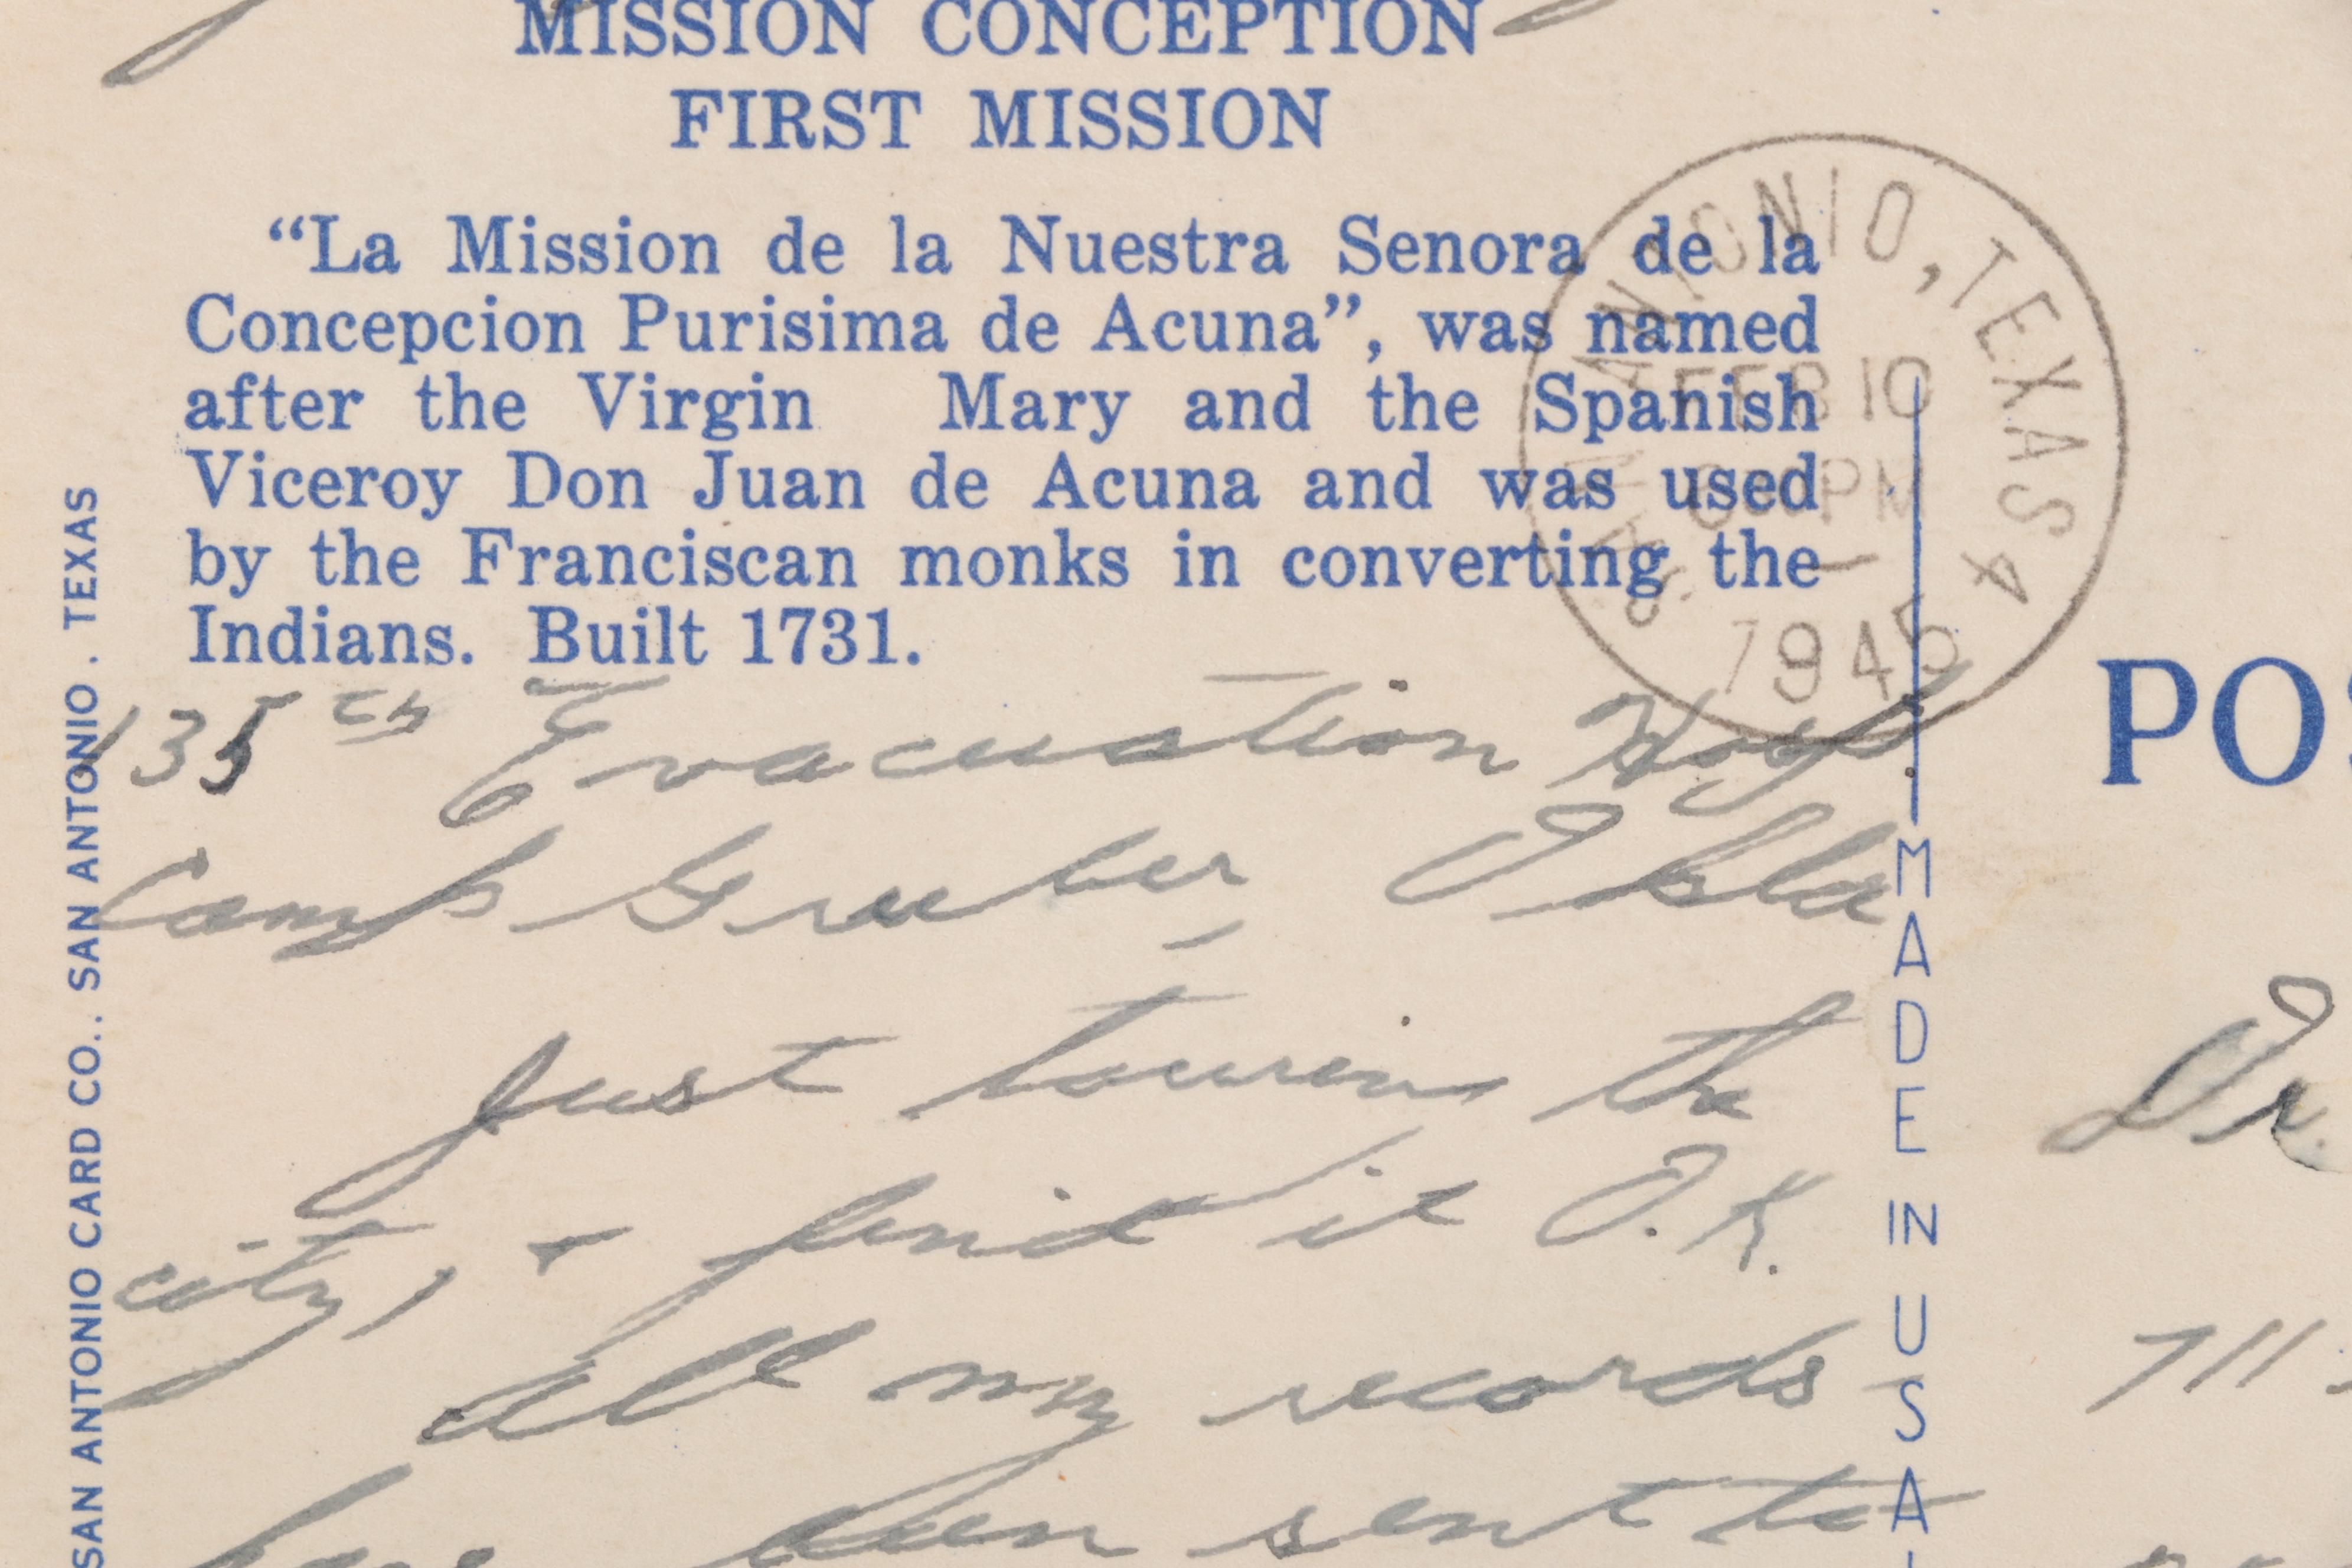 MISSION CONCEPTION
FIRST MISSION
“La Mission de la Nuestra Senora de la
Concepcion Purisima de Acuna”, was named
after the Virgin Mary and the Spanish
Viceroy Don Juan de Acuna and was used
by the Franciscan monks in converting the
Indians. Built 1731.
SAN ANTONIO, TEXAS 4
FEB 10
PM
1
1945
135th Evacuation Hosp.
Camp Gruber, Okla
Just tourin the
city, + find it O.K.
All my records
been sent to
SAN ANTONIO CARD CO., SAN ANTONIO, TEXAS
MADE IN USA
POS
Dr.
711